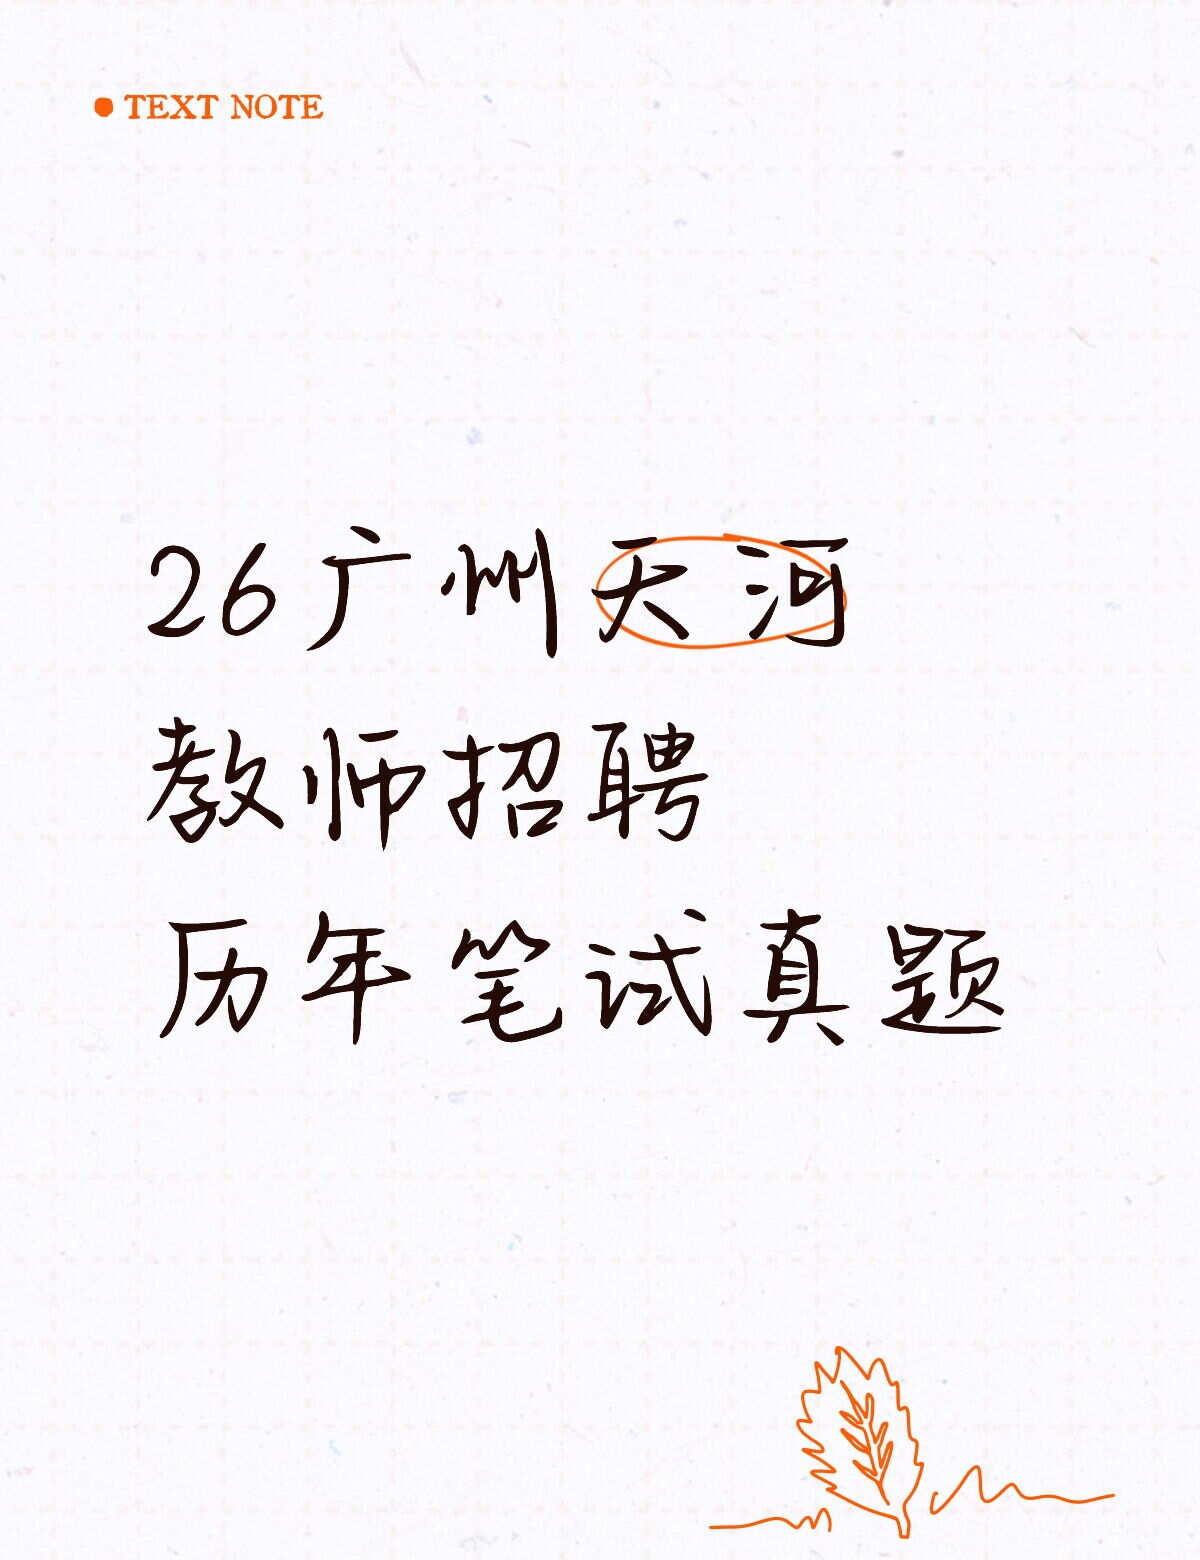 TEXT NOTE
26广州天河
教师招聘
历年笔试真题